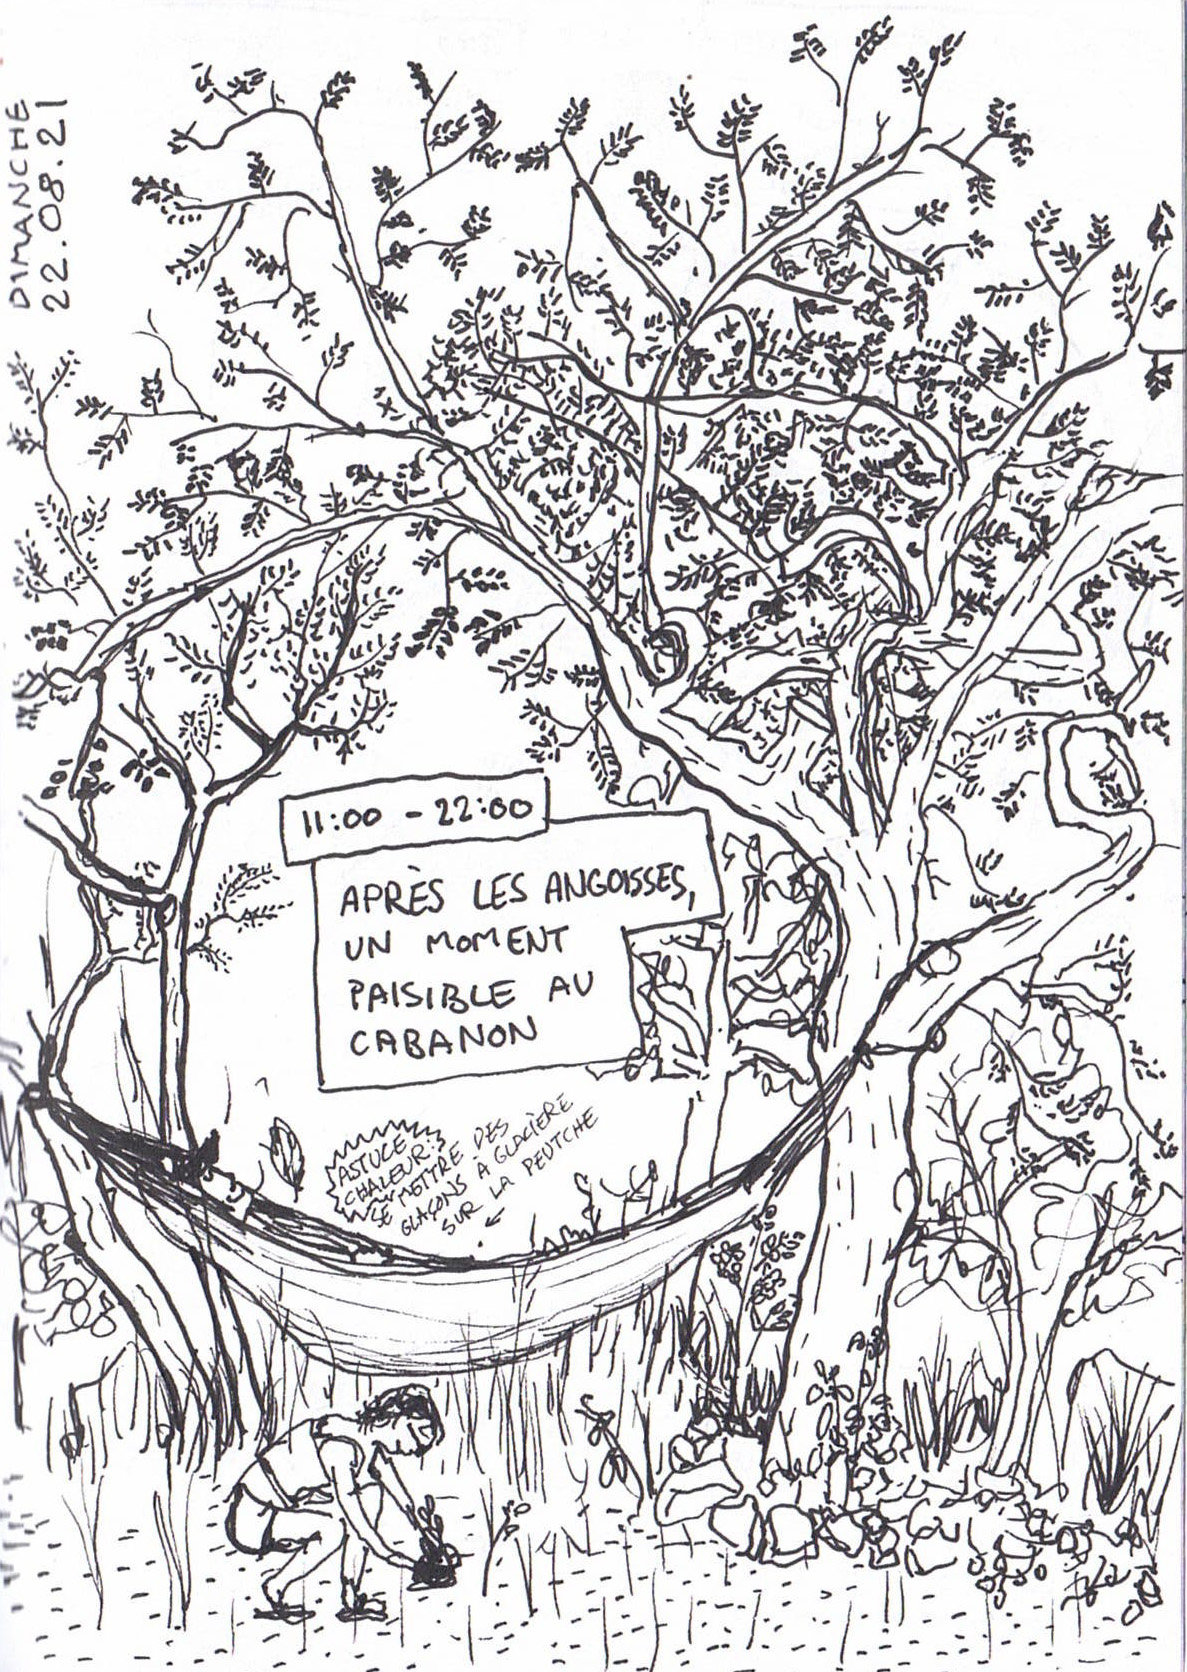 DIMANCHE
22.08.21
11:00 - 22:00
APRÈS LES ANGOISSES,
UN MOMENT
PAISIBLE AU
CABANON
ASTUCE
CHALEUR :
SE METTRE DES
GLAÇONS A GLACIÈRE
SUR LA PEUTCHE